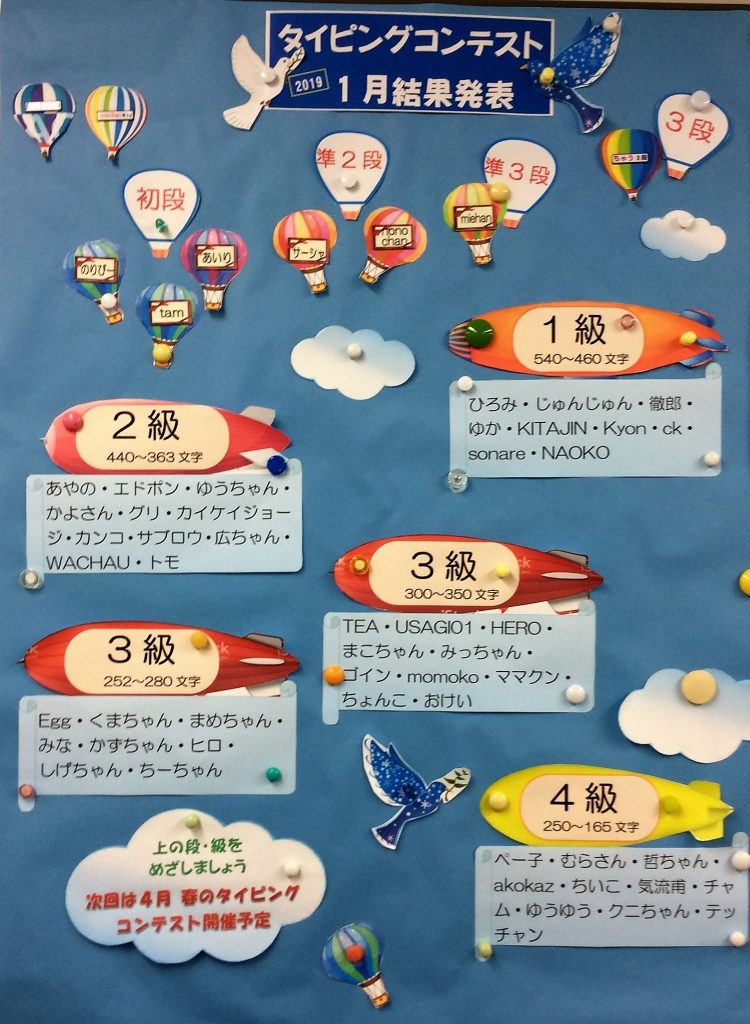 タイピングコンテスト
2019 1月結果発表
3段
ちゃう3級
準2段
準3段
初段
miehan
nono
chan
サーシャ
あいり
のりぴー
tam
1級
540～460文字
ひろみ・じゅんじゅん・徹郎・
ゆか・KITAJIN・Kyon・ck・
sonare・NAOKO
2級
440～363文字
あやの・エドポン・ゆうちゃん・
かよさん・グリ・カイケイジョー
ジ・カンコ・サブロウ・広ちゃん・
WACHAU・トモ
3級
300～350文字
TEA・USAGI01・HERO・
まこちゃん・みっちゃん・
ゴイン・momoko・ママクン・
ちょんこ・おけい
3級
252～280文字
Egg・くまちゃん・まめちゃん・
みな・かずちゃん・ヒロ・
しげちゃん・ちーちゃん
4級
250～165文字
ペー子・むらさん・哲ちゃん・
akokaz・ちいこ・気流甫・チャ
ム・ゆうゆう・クニちゃん・テッ
チャン
上の段・級を
めざしましょう
次回は4月 春のタイピング
コンテスト開催予定